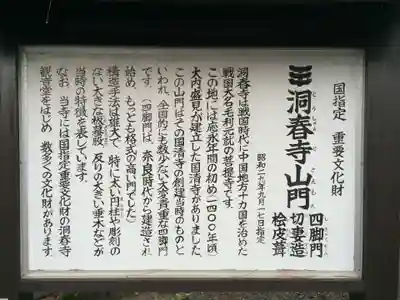 国指定 重要文化財
洞春寺山門
とうしゅんじさんもん
四脚門
しきゃくもん
切妻造
桧皮葺
昭和二九年九月一七日指定
洞春寺は戦国時代に中国地方十カ国を治めた
戦国大名毛利元就の菩提寺です。
この地には応永年間の初め(一四〇〇年頃)
大内盛見が建立した国清寺がありました。
この山門はその国清寺の創建当時のものと
いわれ、全国的にも数少ない大変貴重な四脚門
です。(四脚門は、奈良時代から建造され
始め、もっとも格式の高い門でした)
構造手法は雄大で、特に太い円柱や彫刻の
ない大きな板蟇股、反りの大きい垂木などが
当時の特徴を表しています。
なお、当寺には国指定重要文化財の洞春寺
観音堂をはじめ、数多くの文化財があります。